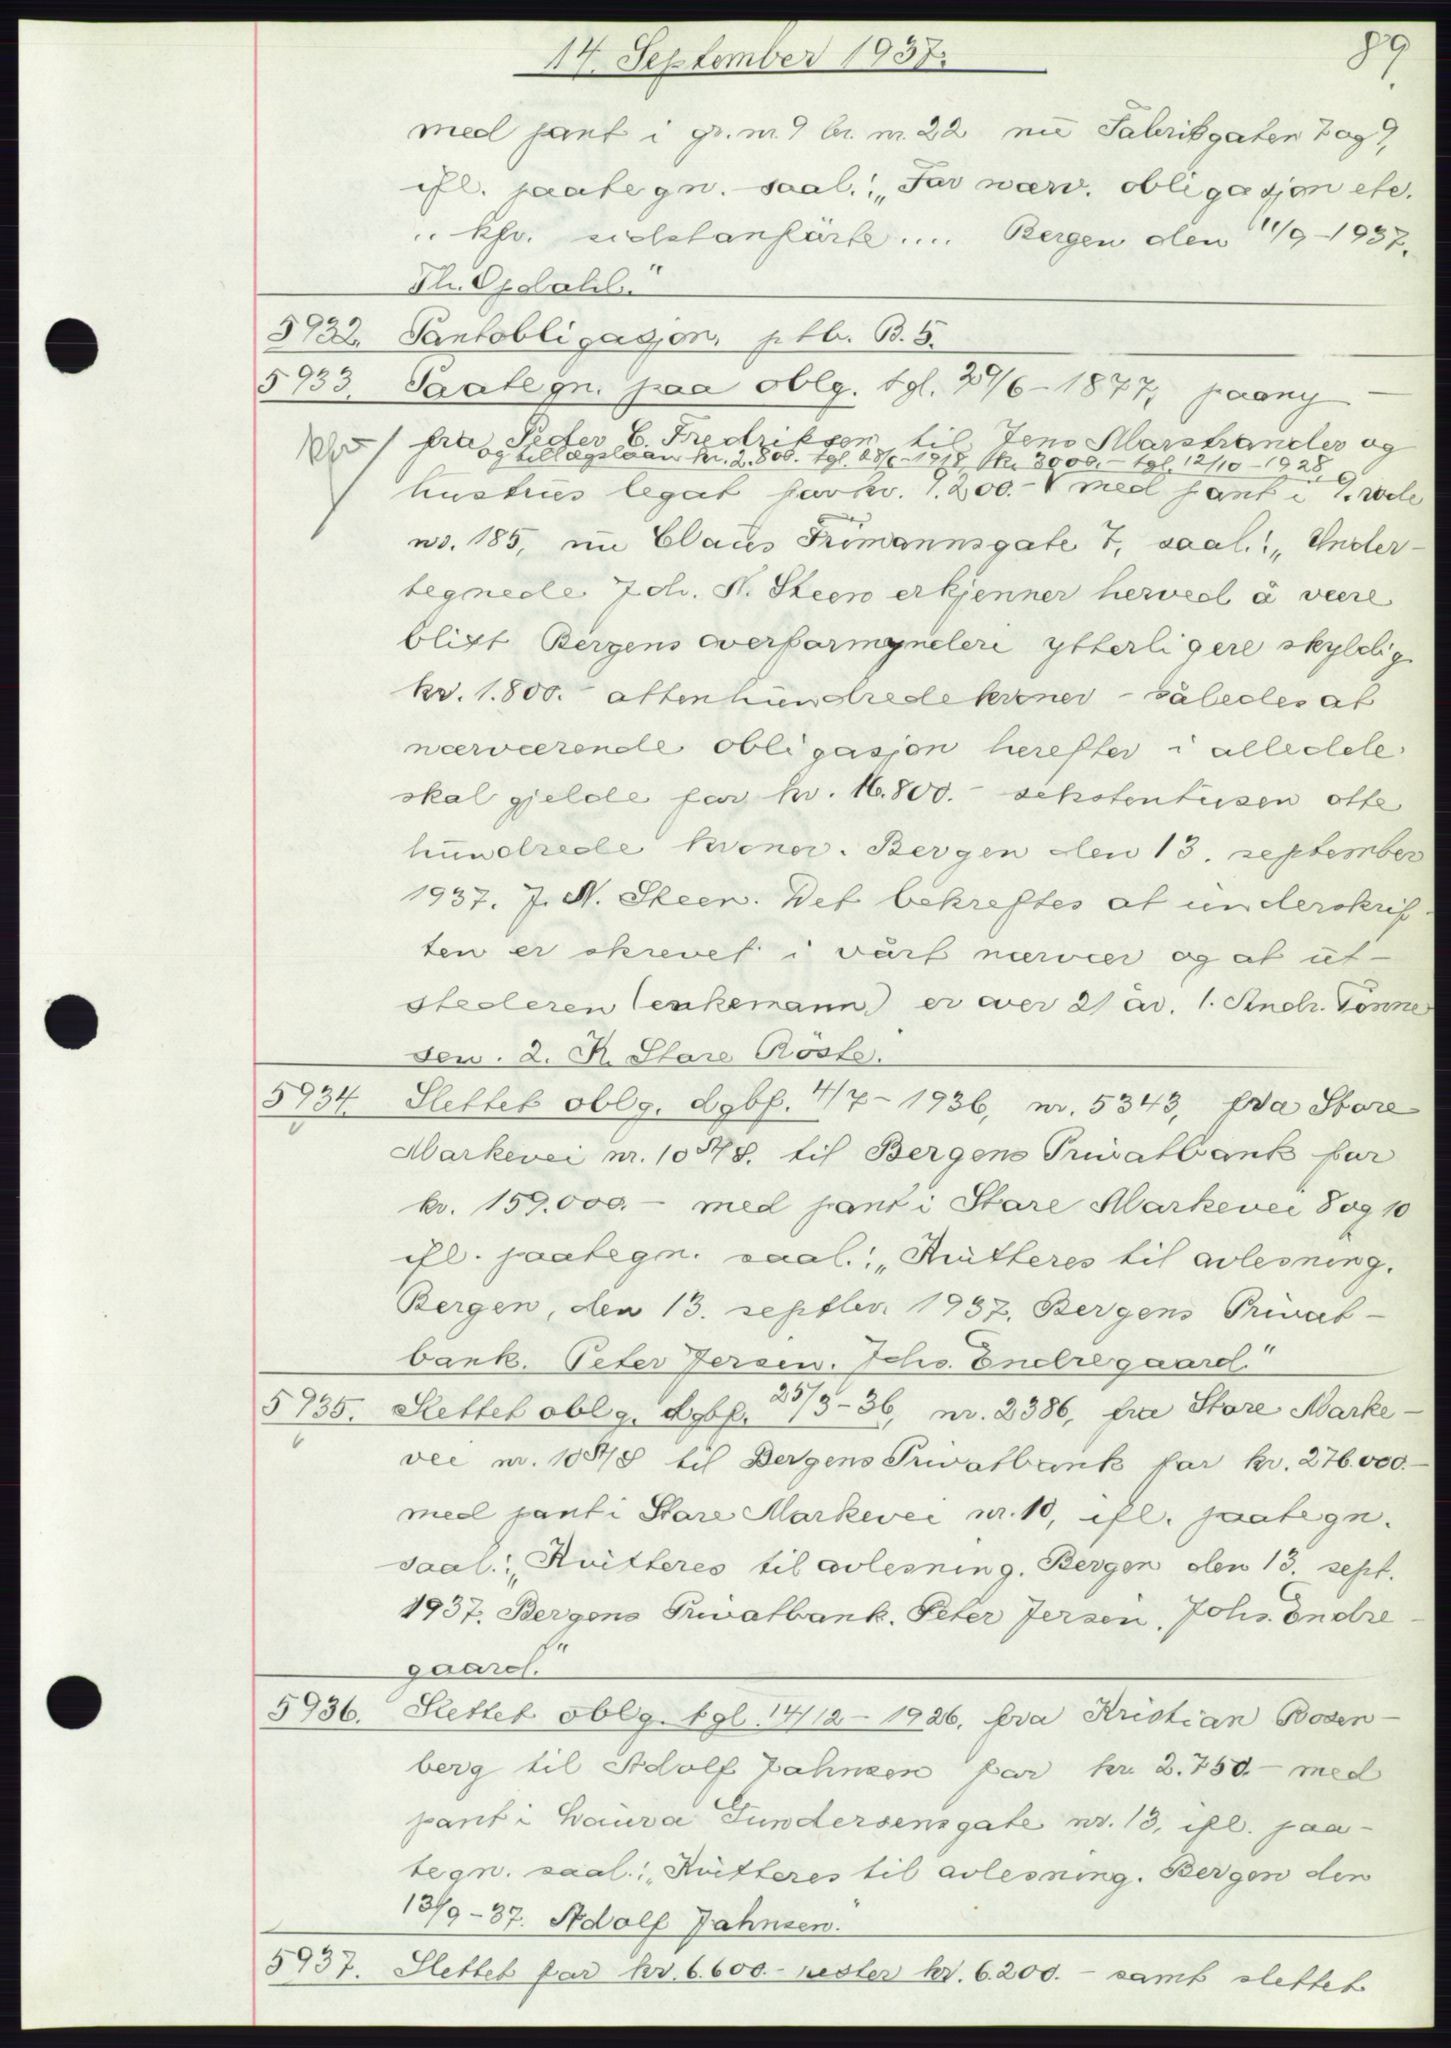 14. September 1937.
89.
med pant i gr. nr. 9 br. nr. 22 nu Fabrikgaten 7 og 9,
ifl. paategn. saal.: „For nærv. obligasjon etc.
.. kfr. sidstanførte .... Bergen den 11/9-1937.
Th. Opdahl."
5932. Pantobligasjon, ptb. B. 5.
5933. Paategn. paa oblg. tgl. 29/6-1877, paany
kfr / fra Peder C. Fredriksen til Jens Marstrander og
og tillægslaan kr. 2.800.- tgl. 28/6-1918, kr. 3000.- tgl. 12/10-1928,
hustrus legat for kr. 9.200.- V med pant i 9. rode
nr. 185, nu Claus Frimannsgate 7, saal.: „Under-
tegnede Joh. N. Steen erkjenner herved å være
blitt Bergens overformynderi ytterligere skyldig
kr. 1.800.- attenhundrede kroner - således at
nærværende obligasjon herefter i alle dele
skal gjelde for kr. 16.800.- sekstentusen otte
hundrede kroner. Bergen den 13. september
1937. J. N. Steen. Det bekreftes at underskrif-
ten er skrevet i vårt nærvær og at ut-
stederen (enkemann) er over 21 år. 1. Andr. Tønne
sen. 2. K. Stare Röste.
5934. Slettet oblg. dgbf. 4/7-1936, nr. 5343, fra Store
Markevei nr. 10 A/S. til Bergens Privatbank for
kr. 159.000.- med pant i Store Markevei 8 og 10
ifl. paategn. saal.: „Kvitteres til avlesning.
Bergen, den 13. septbr. 1937. Bergens Privat-
bank. Peter Jersin. Johs. Endregaard."
5935. Slettet oblg. dgbf. 25/3-36, nr. 2386, fra Store Marke-
vei nr. 10 A/S til Bergens Privatbank for kr. 276.000.-
med pant i Store Markevei nr. 10, ifl. paategn.
saal.: „Kvitteres til avlesning. Bergen den 13. sept.
1937. Bergens Privatbank. Peter Jersin. Johs. Endre-
gaard."
5936. Slettet oblg. tgl. 14/12-1926. fra Kristian Rosen-
berg til Adolf Jahnsen for kr. 2.750.- med
pant i Laura Gundersensgate nr. 13, ifl. paa-
tegn. saal.: „Kvitteres til avlesning. Bergen den
13/9-37. Adolf Jahnsen."
5937. Slettet for kr. 6.600.- rester kr. 6.200.- samt slettet